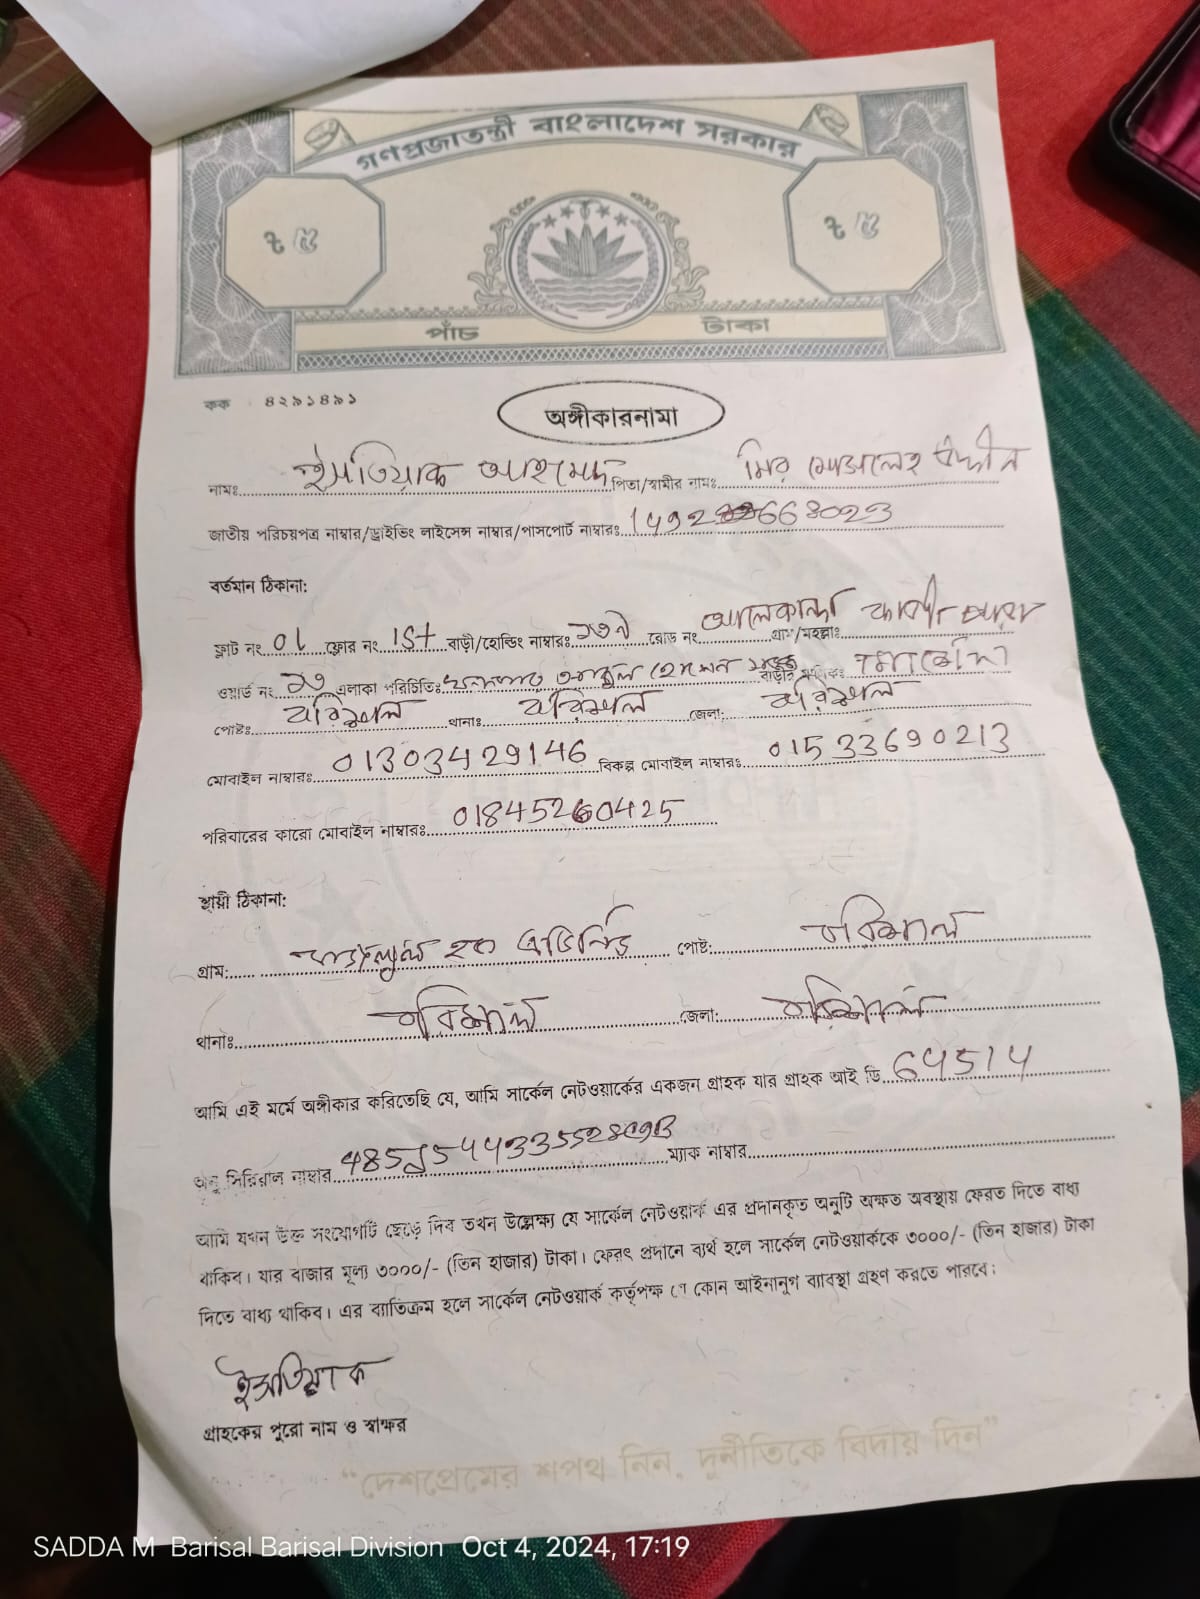 গণপ্রজাতন্ত্রী বাংলাদেশ সরকার
৳ ৫ ৳ ৫
পাঁচ টাকা
কক ৪২৯১৪৯১
অঙ্গীকারনামা
নামঃ ইসতিয়াক আহমেদ পিতা/স্বামীর নামঃ মির মোসলেহ উদ্দীন
জাতীয় পরিচয়পত্র নাম্বার/ড্রাইভিং লাইসেন্স নাম্বার/পাসপোর্ট নাম্বারঃ
বর্তমান ঠিকানা:
ফ্লাট নং 01 ফ্লোর নং 1st বাড়ী/হোল্ডিং নাম্বারঃ রোড নং আলেকান্দা গ্রাম/মহল্লাঃ
ওয়ার্ড নং এলাকা পরিচিতিঃ
পোষ্টঃ বরিশাল থানাঃ বরিশাল জেলা: বরিশাল
মোবাইল নাম্বারঃ 01303429146 বিকল্প মোবাইল নাম্বারঃ 01533690213
পরিবারের কারো মোবাইল নাম্বারঃ 01845260425
স্থায়ী ঠিকানা:
গ্রাম: হক এভিনিউ পোষ্ট: বরিশাল
থানাঃ বরিশাল জেলা: বরিশাল
আমি এই মর্মে অঙ্গীকার করিতেছি যে, আমি সার্কেল নেটওয়ার্কের একজন গ্রাহক যার গ্রাহক আই ডি 64514
অনু সিরিয়াল নাম্বার ম্যাক নাম্বার
আমি যখন উক্ত সংযোগটি ছেড়ে দিব তখন উল্লেক্ষ্য যে সার্কেল নেটওয়ার্ক এর প্রদানকৃত অনুটি অক্ষত অবস্থায় ফেরত দিতে বাধ্য
থাকিব। যার বাজার মূল্য ৩০০০/- (তিন হাজার) টাকা। ফেরৎ প্রদানে ব্যর্থ হলে সার্কেল নেটওয়ার্ককে ৩০০০/- (তিন হাজার) টাকা
দিতে বাধ্য থাকিব। এর ব্যাতিক্রম হলে সার্কেল নেটওয়ার্ক কর্তৃপক্ষ যে কোন আইনানুগ ব্যাবস্থা গ্রহণ করতে পারবে।
ইসতিয়াক
গ্রাহকের পুরো নাম ও স্বাক্ষর
“দেশপ্রেমের শপথ নিন, দুর্নীতিকে বিদায় দিন”
SADDA M Barisal Barisal Division Oct 4, 2024, 17:19